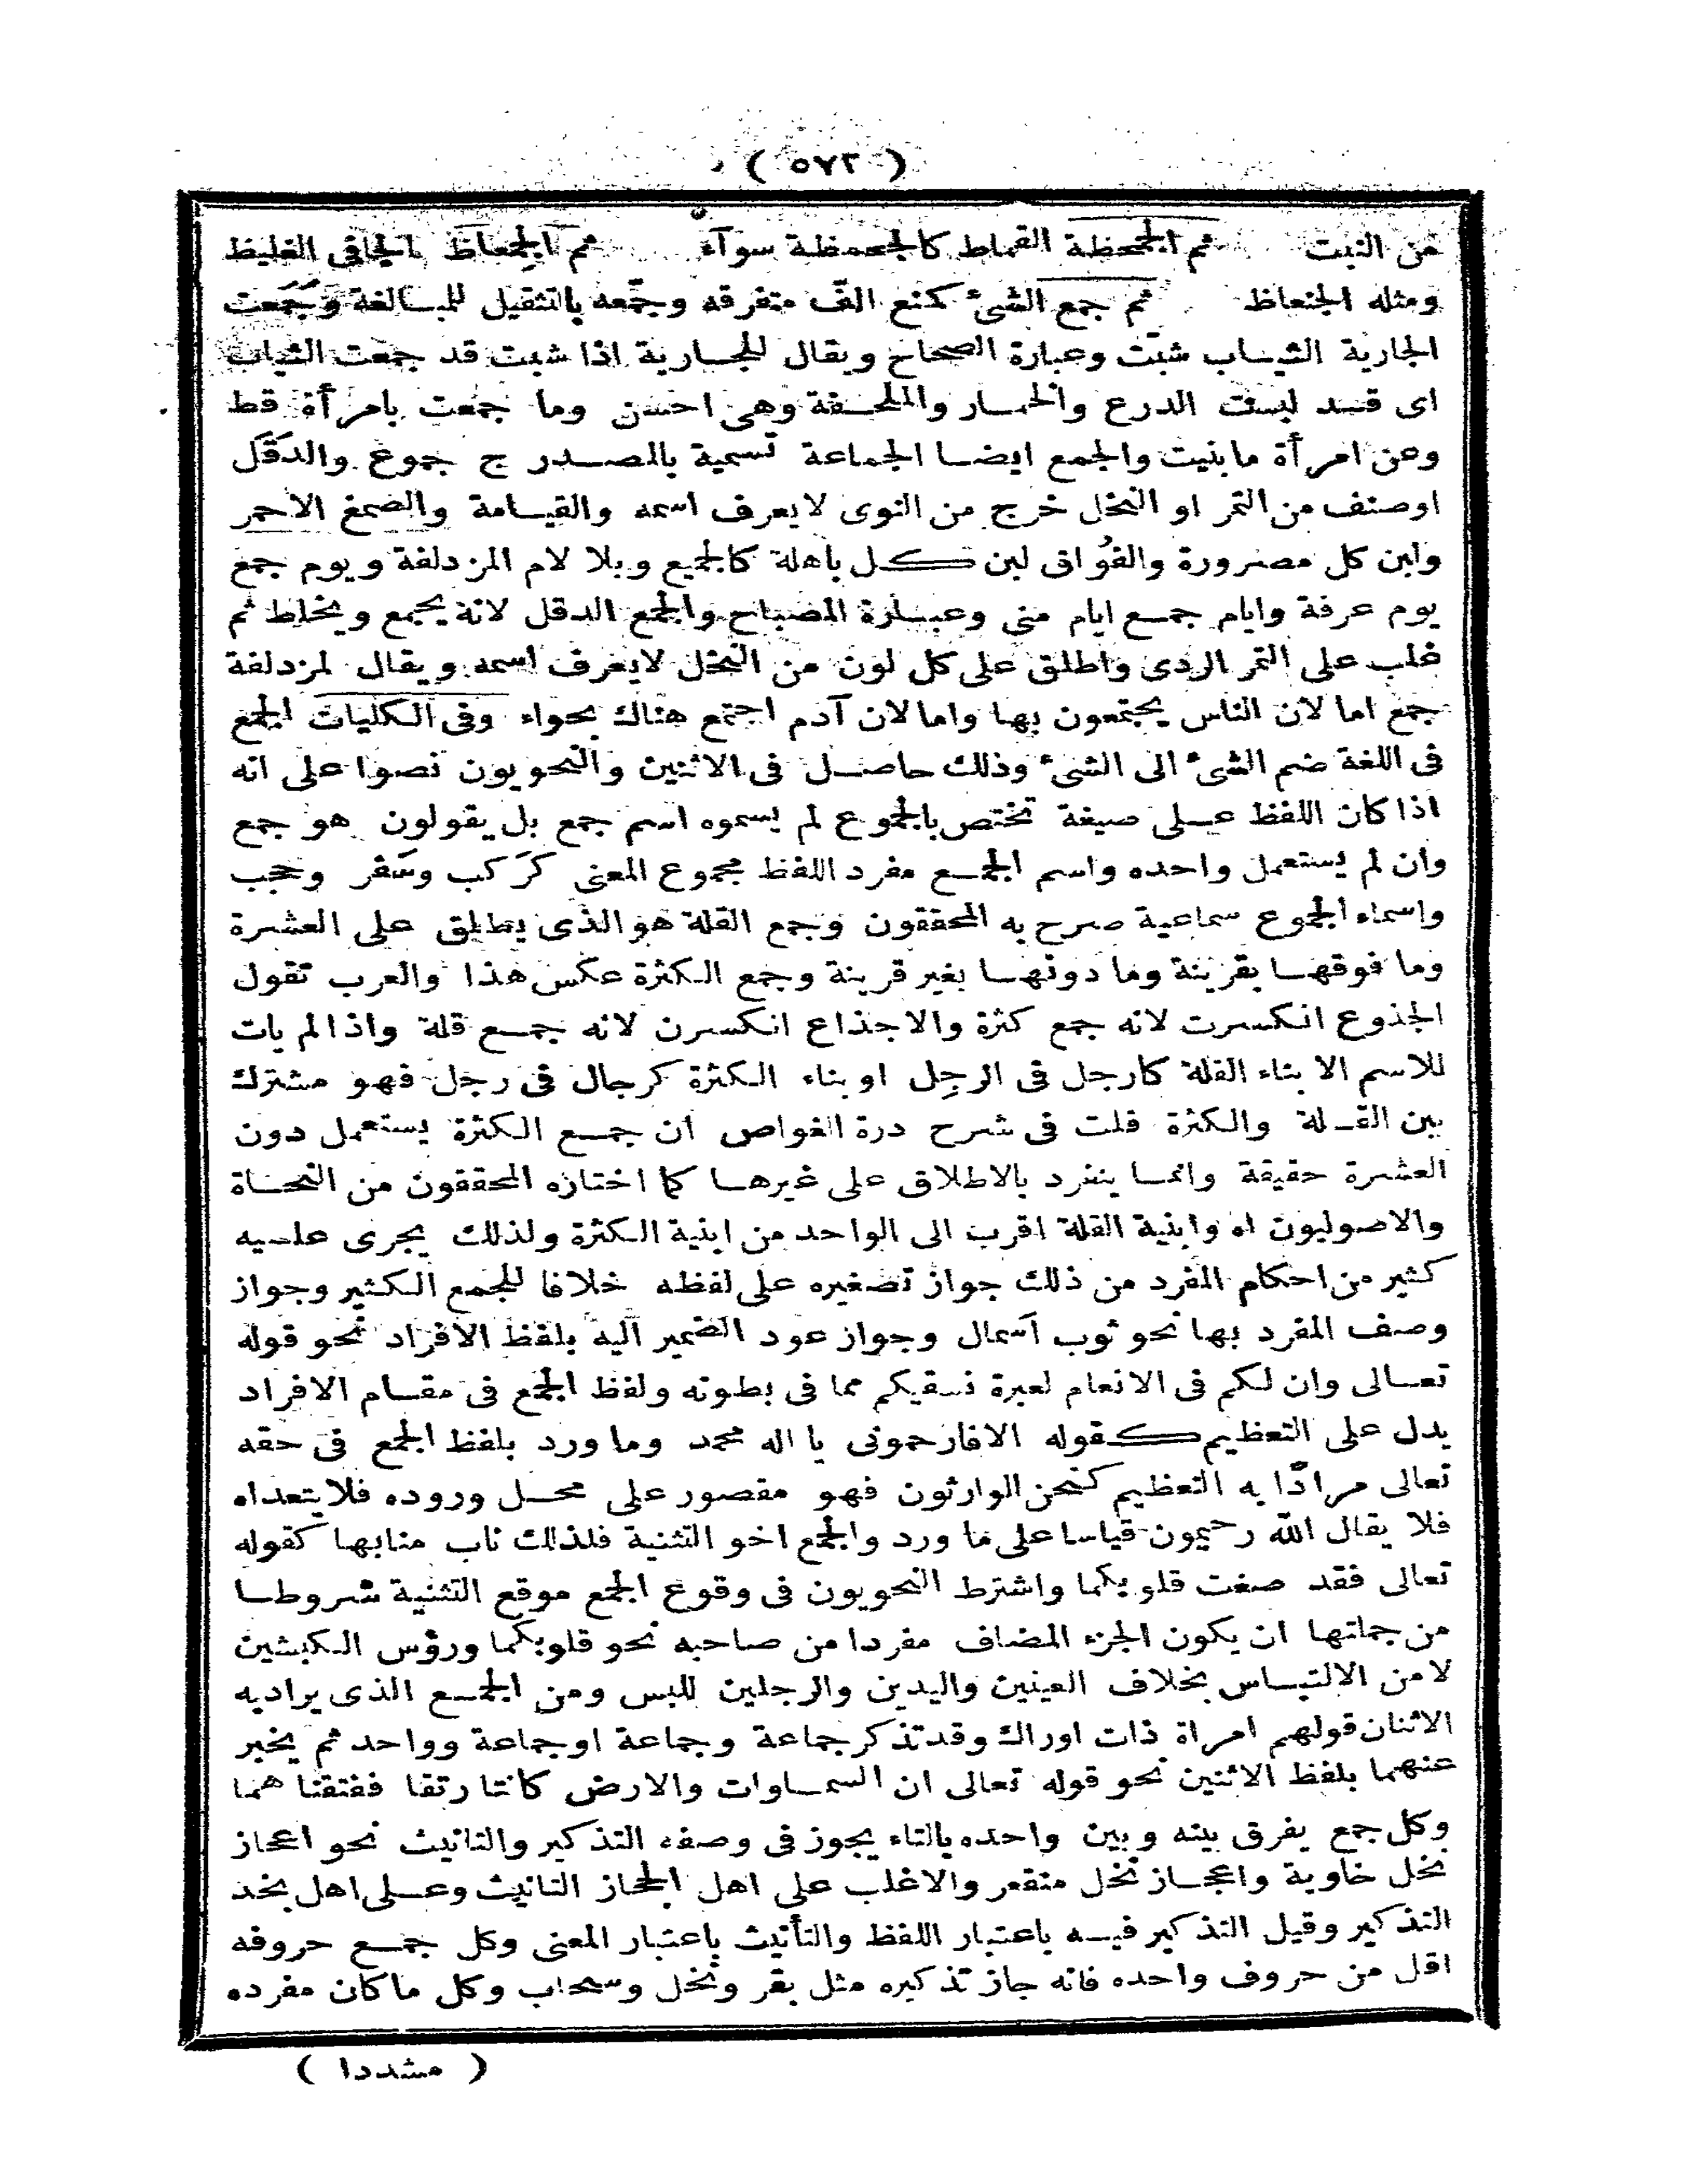 ( ٥٧٢ )
من النبت ثم الجمحظة القماط كالجحمظة سوآء ثم الجمعاظ الجافى الغليظ
ومثله الجنعاظ ثم جمع الشئ كمنع الف متفرقه وجمّعه بالتثقيل للمبالغة وجَمَعت
الجارية الثيـاب شبّت وعبارة الصحاح ويقال للجـارية اذا شبت قد جمعت الثياب
اى قـد لبست الدرع والخمـار والملحـفة وهى احسن وما جمعت بامرأة قط
وعن امرأة مابنيت والجمع ايضـا الجماعة تسمية بالمصـدر ج جموع والدَقَل
اوصنف من التمر او النخل خرج من النوى لايعرف اسمه والقيـامة والصمغ الاحمر
ولبن كل مصرورة والفُواق لبن كـل باهلة كالجميع وبلا لام المزدلفة ويوم جمع
يوم عرفة وايام جمـع ايام منى وعبـارة المصباح والجمع الدقل لانه يجمع ويخلط ثم
غلب على التمر الردى واطلق على كل لون من النخل لايعرف اسمه ويقال لمزدلفة
جمع اما لان الناس يجتمعون بها واما لان آدم اجتمع هناك بحواء وفى الكليات الجمع
فى اللغة ضم الشئ الى الشئ وذلك حاصـل فى الاثنين والنحويون نصوا على انه
اذا كان اللفظ عـلى صيغة تختص بالجموع لم يسموه اسم جمع بل يقولون هو جمع
وان لم يستعمل واحده واسم الجمـع مفرد اللفظ مجموع المعنى كرَكب وسَفر وصحب
واسماء الجموع سماعية صرح به المحققون وجمع القلة هو الذى يطلق على العشرة
وما فوقهـا بقرينة وما دونهـا بغير قرينة وجمع الكثرة عكس هذا والعرب تقول
الجذوع انكسرت لانه جمع كثرة والاجذاع انكسرن لانه جمـع قلة واذا لم يات
للاسم الا بناء القلة كارجل فى الرجِل او بناء الكثرة كرجال فى رجل فهو مشترك
بين القـلة والكثرة قلت فى شرح درة الغواص ان جمـع الكثرة يستعمل دون
العشرة حقيقة وانمـا ينفرد بالاطلاق على غيرهـا كما اختاره المحققون من النحـاة
والاصوليون اه وابنية القلة اقرب الى الواحد من ابنية الكثرة ولذلك يجرى علـيه
كثير من احكام المفرد من ذلك جواز تصغيره على لفظه خلافا للجمع الكثير وجواز
وصف المفرد بها نحو ثوب اَسمال وجواز عود الضمير اليه بلفظ الافراد نحو قوله
تعـالى وان لكم فى الانعام لعبرة نسقيكم مما فى بطونه ولفظ الجمع فى مقـام الافراد
يدل على التعظيم كـقوله الافارحمونى يا اله محمد وما ورد بلفظ الجمع فى حقه
تعالى مرادًا به التعظيم كنحن الوارثون فهو مقصور على محـل وروده فلا يتعداه
فلا يقال الله رحيمون قياسا على ما ورد والجمع اخو التثنية فلذلك ناب منابها كقوله
تعالى فقد صغت قلوبكما واشترط النحويون فى وقوع الجمع موقع التثنية شروطـا
من جملتها ان يكون الجزء المضاف مفردا من صاحبه نحو قلوبكما ورؤس الكبشين
لامن الالتبـاس بخلاف العينين واليدين والرجلين للبس ومن الجمـع الذى يراد به
الاثنان قولهم امراة ذات اوراك وقد تذكر جماعة وجماعة او جماعة وواحد ثم يخبر
عنهما بلفظ الاثنين نحو قوله تعالى ان السمـاوات والارض كانتا رتقا ففتقنا هما
وكل جمع يفرق بينه وبين واحده بالتاء يجوز فى وصفه التذكير والتانيث نحو اعجاز
نخل خاوية واعجـاز نخل منقعر والاغلب على اهل الحجاز التانيث وعـلى اهل نجد
التذكير وقيل التذكير فيـه باعتبار اللفظ والتأنيث باعتبار المعنى وكل جمـع حروفه
اقل من حروف واحده فانه جاز تذكيره مثل بقر ونخل وسحاب وكل ما كان مفرده
( مشددا )